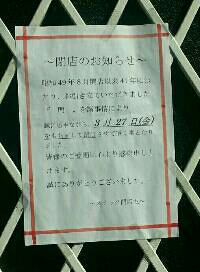 ～閉店のお知らせ～
昭和49年8月開店以来41年に
わたり、お引き立ていただきました
が 閉 、 を 諸事情により
誠に勝手ながら、3月27日(金)
をもちまして閉店させて頂く事となり
ました。
皆様のご愛顧に心より感謝申し上
げます。
誠にありがとうございました。